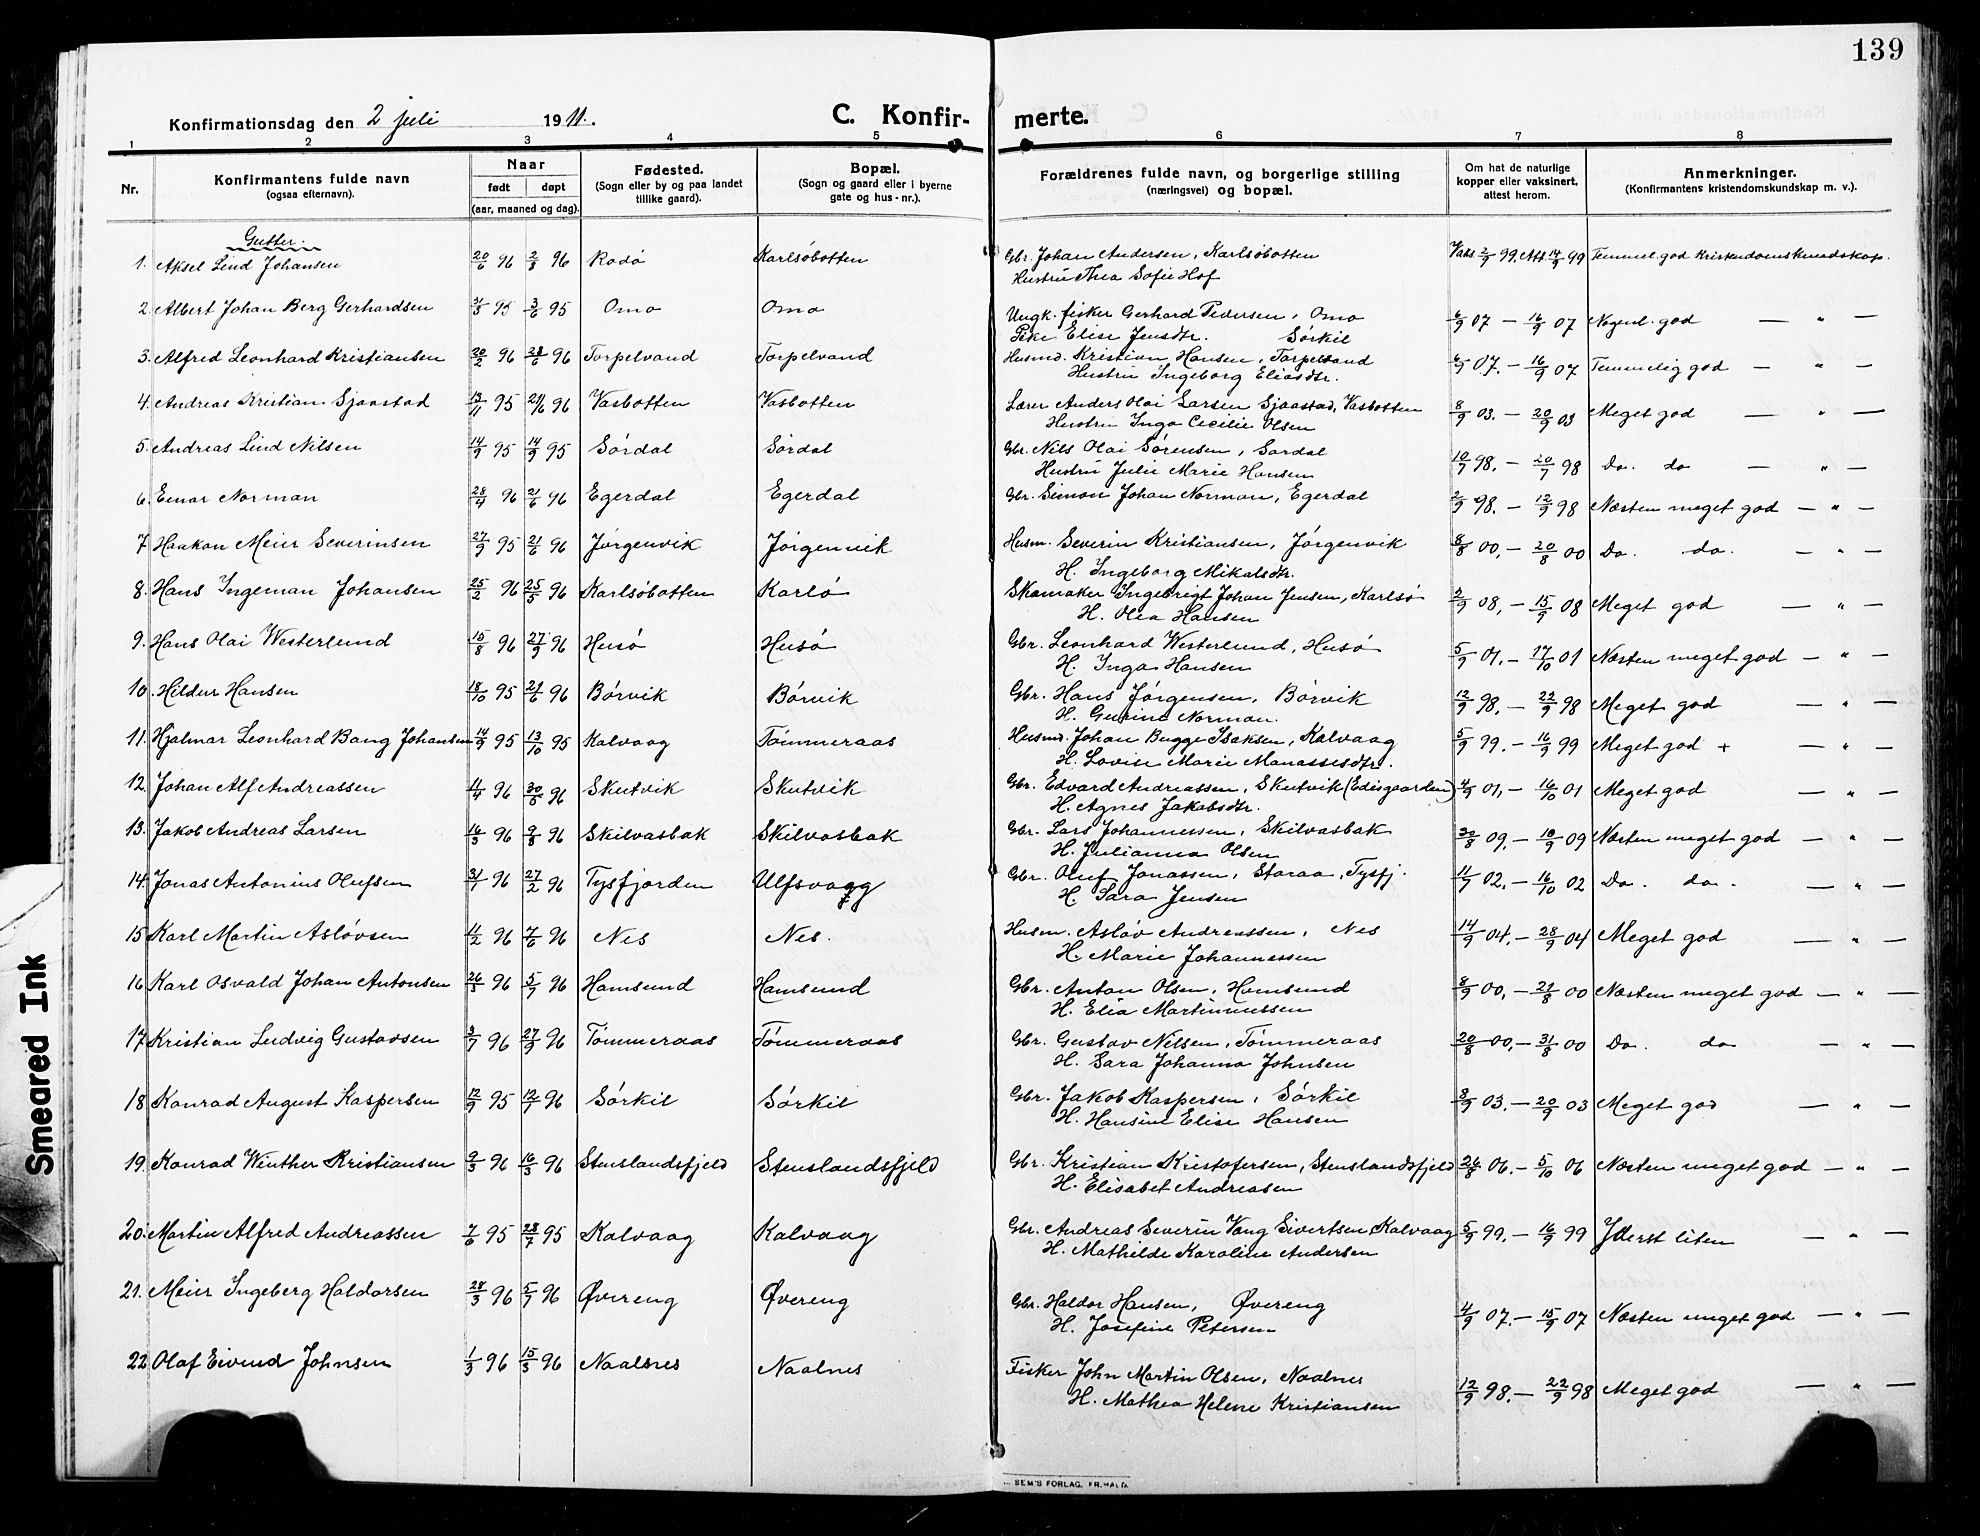 139
Konfirmationsdag den 2 juli 1911. C. Konfir- merte.
1 2 3 4 5 6 7 8
Nr. Konfirmantens fulde navn (ogsaa efternavn). Naar født døpt (aar, maaned og dag). Fødested. (Sogn eller by og paa landet tillike gaard). Bopæl. (Sogn og gaard eller i byerne gate og hus-nr.). Forældrenes fulde navn, og borgerlige stilling (næringsvei) og bopæl. Om hat de naturlige kopper eller vaksinert, attest herom. Anmerkninger. (Konfirmantens kristendomskundskap m. v.).
Gutter.
1. Aksel Lind Johansen 20/6 96 2/8 96 Rodö Karlsöbotten Gbr. Johan Andersen, Karlsöbotten Vaks 2/9 99. Att 14/9 99 Temmel. god Kristendomskundskap.
Hustru Thea Sofie Hof
2. Albert Johan Berg Gerhardsen 31/3 95 3/6 95 Omo Omo Ungk. fisker Gerhard Pedersen, Omo 6/9 07 — 16/9 07 Nogenl. god — " —
Pike Elise Jensdtr. Sörkil
3. Alfred Leonhard Kristiansen 20/2 96 28/6 96 Torpelvand Torpelvand Husmd. Kristian Hansen, Torpelvand 6/9 07. — 16/9 07 Temmelig god — " —
Hustru Ingeborg Eliasdtr.
4. Andreas Kristian Sjaastad 13/11 95 21/6 96 Vasbotten Vasbotten Lærer Anders Olai Larsen Sjaastad, Vasbotten 8/9 03. — 20/9 03 Meget god — " —
Hustru Inga Cecilie Olsen
5. Andreas Lind Nilsen 14/9 95 14/9 95 Sördal Sördal Gbr. Nils Olai Sörensen, Sördal 10/7 98. — 20/7 98 Do. do — " —
Hustru Julie Marie Hansen
6. Einar Norman 28/4 96 21/6 96 Egerdal Egerdal Gbr. Simon Johan Norman, Egerdal 2/9 98. — 12/9 98 Næsten meget god — " —
7 Haakon Meier Severinsen 27/9 95 21/6 96 Jörgenvik Jörgenvik Husm. Severin Kristiansen, Jörgenvik 8/8 00. — 20/8 00 Do. do. — " —
H. Ingeborg Mikalsdtr.
8. Hans Ingeman Johansen 25/2 96 25/5 96 Karlsöbotten Karlö Skomaker Ingebrigt Johan Jensen, Karlsö 2/9 08, — 15/9 08 Meget god — " —
H. Olea Hansen
9. Hans Olai Westerlund 15/8 96 27/9 96 Husö Husö Gbr. Leonhard Westerlund, Husö 5/9 01. — 17/10 01 Næsten meget god — " —
H. Inga Hansen
10 Hildur Hansen 18/10 95 21/6 96 Börvik Börvik Gbr. Hans Jörgensen, Börvik 12/9 98. — 22/9 98 Meget god — " —
H. Gurine Norman.
11. Hjalmar Leonhard Bang Johansen 14/9 95 13/10 95 Kalvaag Tömmeraas Husmd. Johan Bugge Isaksen, Kalvaag 5/9 99. — 16/9 99 Meget god + — " —
H. Lovise Marie Manassesdtr.
12. Johan Alf Andreassen 11/4 96 30/5 96 Skutvik Skutvik Gbr. Edvard Andreassen, Skutvik (Edisgaarden) 4/9 01, — 16/10 01 Meget god — " —
H. Agnes Jakobsdtr.
13. Jakob Andreas Larsen 16/3 96 9/8 96 Skilvasbak Skilvasbak Gbr. Lars Johannessen, Skilvasbak 30/8 09. — 10/9 09 Næsten meget god — " —
H. Julianna Olsen
14. Jonas Antonius Olufsen 31/1 96 27/2 96 Tysfjorden Ulfsvaag Gbr. Oluf Jonassen, Storaa, Tysfj. 11/7 02. — 16/10 02 Do. do. — " —
H. Sara Jensen
15 Karl Martin Aslövsen 11/2 96 7/6 96 Nes Nes. Husm. Aslöv Andreassen, Nes 14/9 04. — 28/9 04 Meget god — " —
H. Marie Johannessen
16 Karl Osvald Johan Antonsen 26/3 96 5/7 96 Hamsund Hamsund Gbr. Anton Olsen, Hamsund 8/9 00, — 21/8 00 Næsten meget god — " —
H. Elia Martinussen
17 Kristian Ludvig Gustavsen 3/7 96 27/9 96 Tömmeraas Tömmeraas Gbr. Gustav Nilsen, Tömmeraas 20/8 00, — 31/8 00 Do. do — " —
H. Sara Johanna Johnsen
18 Konrad August Kaspersen 12/9 95 12/7 96 Sörkil Sörkil Gbr. Jakob Kaspersen, Sörkil 8/9 03. — 20/9 03 Meget god — " —
H. Hansine Elise Hansen
19. Konrad Winther Kristiansen 9/3 96 16/3 96 Stenslandsfjeld Stenslandsfjeld Gbr. Kristian Kristofersen, Stenslandsfjeld 26/8 06. — 5/10 06 Næsten meget god — " —
H. Elisabet Andreasen
20. Martin Alfred Andreassen 7/6 95 28/7 95 Kalvaag Kalvaag Gbr. Andreas Severin Vang Sivertsen Kalvaag 5/9 99. — 16/9 99 Yderst liten — " —
H. Mathilde Karoline Andersen
21. Meier Ingeberg Haldorsen 28/3 96 5/7 96 Øvereng Øvereng Gbr. Haldor Hansen, Øvereng 4/9 07. — 15/9 07 Næsten meget god — " —
H. Josefine Petersen
22 Olaf Eivind Johnsen 1/3 96 15/3 96 Naalsnes Naalnes Fisker John Martin Olsen, Naalnes 12/9 98. — 22/9 98 Meget god — " —
H. Mathea Helene Kristiansen
SEM'S FORLAG, FR.HALD.
Smeared Ink